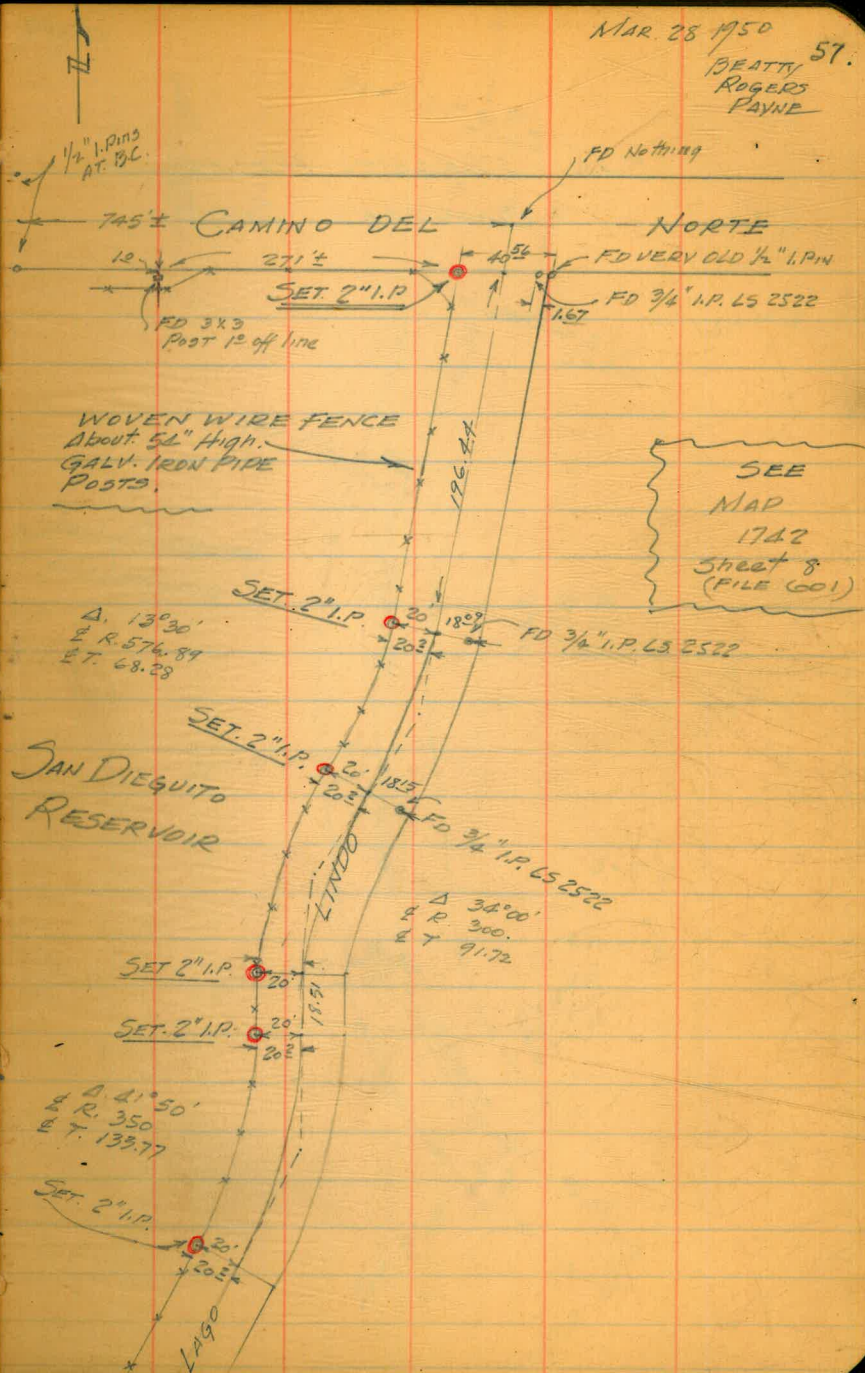 MAR. 28 1950
57.
BEATTY
ROGERS
PAYNE
1/2" I. PINS
AT. B.C.
FD Nothing
745'±
CAMINO DEL
NORTE
1º
271'±
40 56
FD VERY OLD 1/2" I. PIN
SET. 2" I.P.
FD 3/4" I.P. LS 2522
1.67
FD 3x3
Post 1º off line
WOVEN WIRE FENCE
About 54" High.
GALV. IRON PIPE
POSTS.
196.44
SEE
MAP
1742
Sheet 8
(FILE 601)
SET. 2" I.P.
20'
18 09
20 2
FD 3/4" I.P. LS. 2522
Δ. 13°30'
℄ R. 576.89
℄ T. 68.28
SET. 2" I.P.
20'
18 15
20 2
FD 3/4" I.P. LS 2522
SAN DIEGUITO
RESERVOIR
LINDO
Δ 34°00'
℄ R. 300.
℄ T 91.72
SET 2" I.P.
20'
18.51
SET. 2" I.P.
20'
20 2
Δ. 41°50'
℄ R. 350
℄ T. 133.77
SET. 2" I.P.
20'
20 2
LAGO